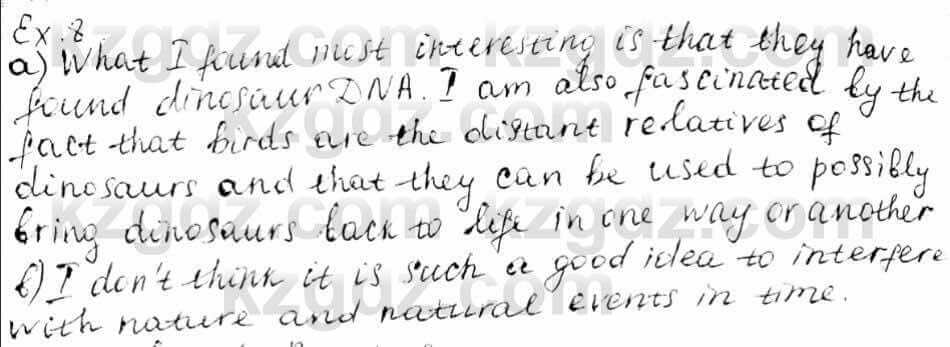 Ex.8
a) What I found most interesting is that they have
found dinosaur DNA. I am also fascinated by the
fact that birds are the distant relatives of
dinosaurs and that they can be used to possibly
bring dinosaurs back to life in one way or another
b) I don't think it is such a good idea to interfere
with nature and natural events in time.